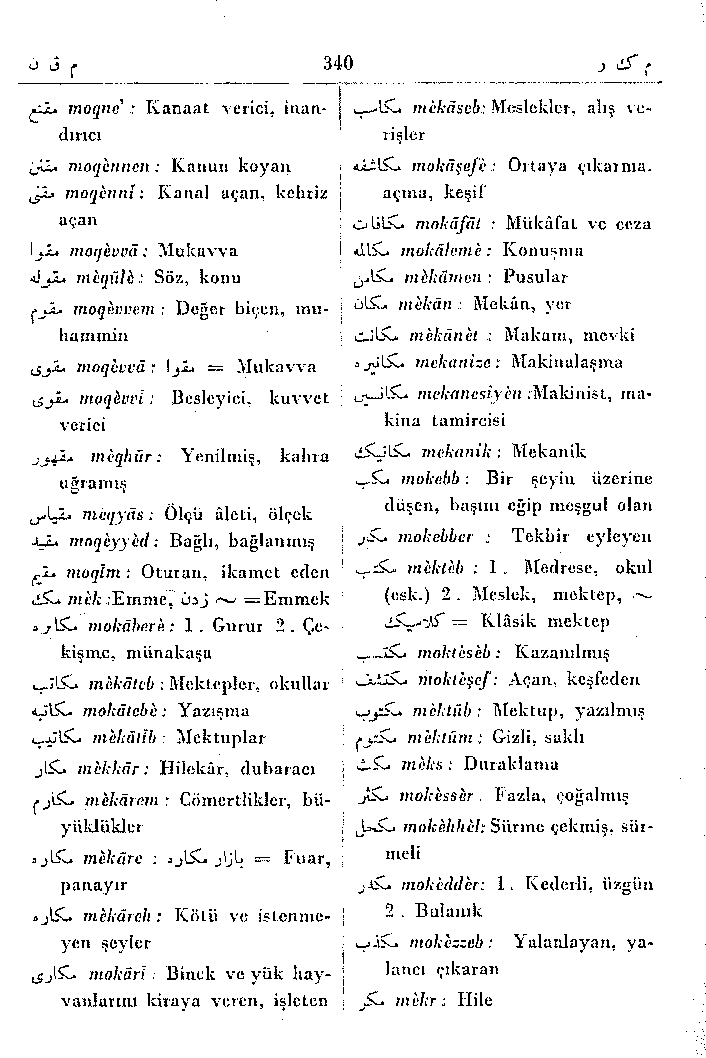 م ق ن 340 م ك ر
مقنع moqne' : Kanaat verici, inan-
dırıcı
مقنن moqènnen : Kanun koyan
مقنی moqènnî : Kanal açan, kehriz
açan
مقوا moqèvvâ : Mukavva
مقوله mèqûlè : Söz, konu
مقوم moqèvvem : Değer biçen, mu-
hammin
مقوی moqèvvâ : مقوا = Mukavva
مقوی moqèvvî : Besleyici, kuvvet
verici
مقهور mèqhûr : Yenilmiş, kahra
uğramış
مقیاس mèqyâs : Ölçü âleti, ölçek
مقید moqèyyèd : Bağlı, bağlanmış
مقیم moqîm : Oturan, ikamet eden
مك mèk : Emme, زدن ~ = Emmek
مكاره mokâberè : 1 . Gurur 2 . Çe-
kişme, münakaşa
مكاتب mèkâteb : Mektepler, okullar
مكاتبه mokâtebè : Yazışma
مكاتیب mèkâtîb : Mektuplar
مكار mèkkâr : Hilekâr, dubaracı
مكارم mèkârem : Cömertlikler, bü-
yüklükler
مكاره mèkâre : بازار مكاره = Fuar,
panayır
مكاره mèkâreh : Kötü ve istenme-
yen şeyler
مكاری mokârî : Binek ve yük hay-
vanlarını kiraya veren, işleten
مكاسب mèkâseb : Meslekler, alış ve-
rişler
مكاشفه mokâşefè : Ortaya çıkarma,
açma, keşif
مكافات mokâfât : Mükâfat ve ceza
مكالمه mokâlemè : Konuşma
مكامن mèkâmen : Pusular
مكان mèkân : Mekân, yer
مكانت mèkânèt : Makam, mevki
مكانیزه mekanize : Makinalaşma
مكانیسین mekanesîyèn : Makinist, ma-
kina tamircisi
مكانیك mekanik : Mekanik
مكب mokebb : Bir şeyin üzerine
düşen, başını eğip meşgul olan
مكبر mokebber : Tekbir eyleyen
مكتب mèktèb : 1 . Medrese, okul
(esk.) 2 . Meslek, mektep, ~
كلاسیك = Klâsik mektep
مكتسب moktèsèb : Kazanılmış
مكتشف moktèşef : Açan, keşfeden
مكتوب mèktûb : Mektup, yazılmış
مكتوم mèktûm : Gizli, saklı
مكث mèks : Duraklama
مكثر mokèssèr . Fazla, çoğalmış
مكحل mokèhhèl : Sürme çekmiş, sür-
meli
مكدر mokèdder : 1 . Kederli, üzgün
2 . Bulanık
مكذب mokèzzeb : Yalanlayan, ya-
lancı çıkaran
مكر mèkr : Hile